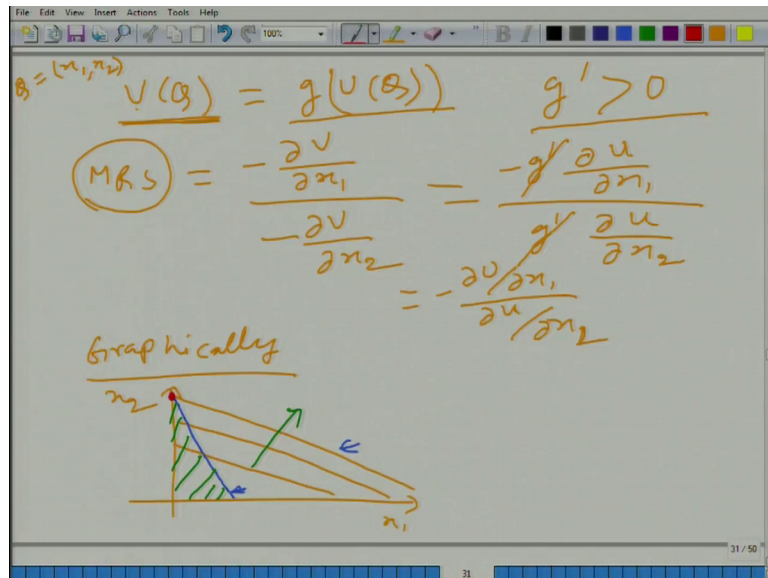 File Edit View Insert Actions Tools Help
100%
B I
Q = (x₁, x₂)
V(Q) = g(U(Q)) g' > 0
MRS = -∂V/∂x₁ / -∂V/∂x₂ = -g' ∂u/∂x₁ / g' ∂u/∂x₂
= - ∂U/∂x₁ / ∂u/∂x₂
Graphically
x₂
x₁
31 / 50
31